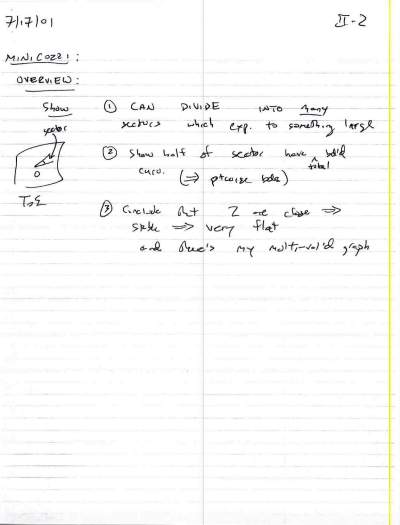 7/17/01 II-2
MINICOZZI:
OVERVIEW:
Show ① CAN DIVIDE INTO many
sectors which exp. to something large
sector
② Show half of sector have bdd
total
curv. (⟹ ptwise bds)
0
③ Conclude that 2 are close ⟹
stable ⟹ very flat
and there's my multi-val'd graph